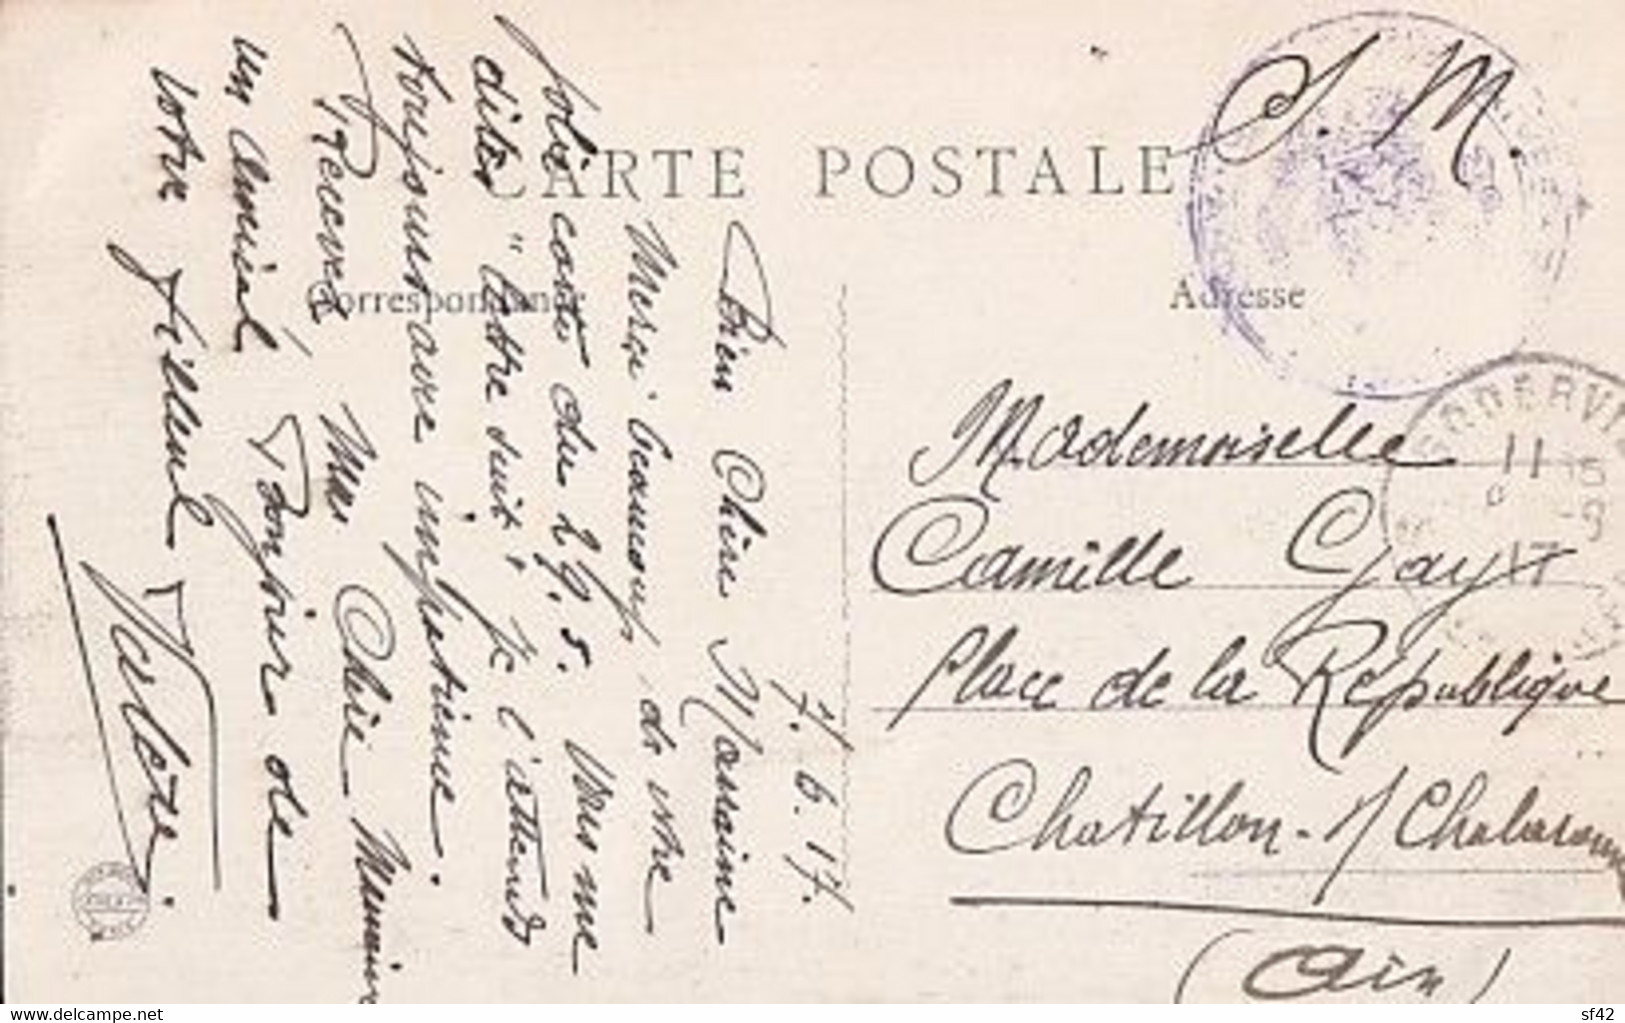 S. M.
CARTE POSTALE
Correspondance
Adresse
7. 6. 17.
Bien Chère Marraine
Merci beaucoup de votre
jolie carte du 29. 5. Vous me
dites "lettre suit", je l'attends
toujours avec impatience.
Recevez Mas Chère Marraine
un Amical Bonjour de
votre filleul
Mademoiselle
Camille Gay
Place de la République
Chatillon-s/Chalaronne
(Ain)
11 15
17
delcampe.net
sf42